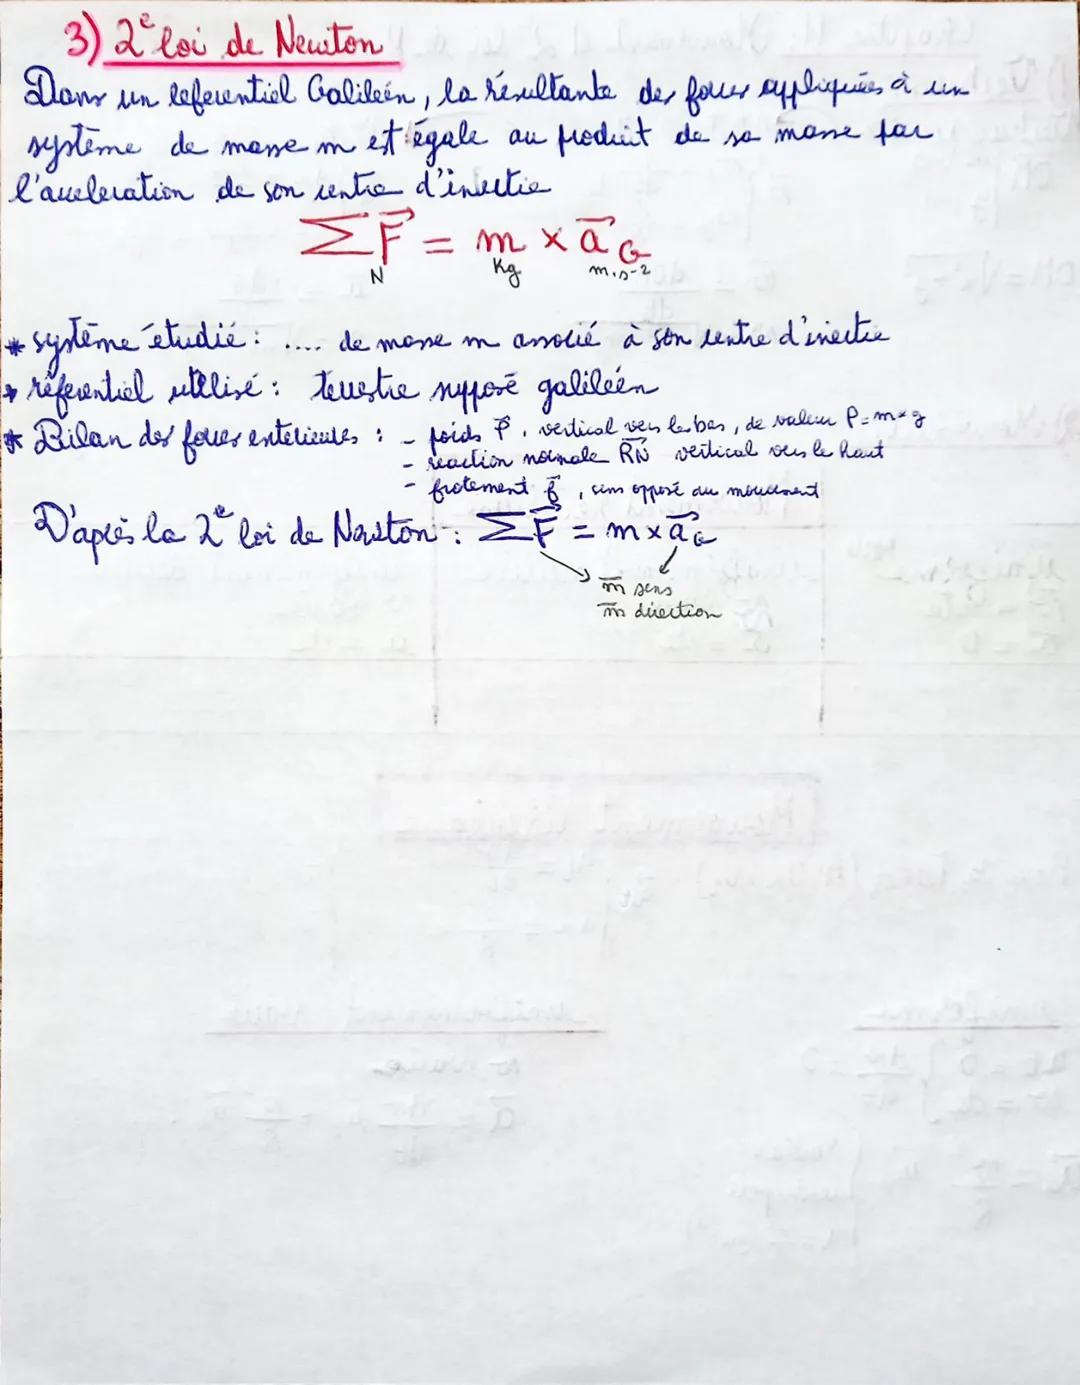 3) 2e loi de Newton
Dans un referentiel Galiléen, la résultante des forces appliquées à un
système de masse m est égale au produit de sa masse par
l'acceleration de son centre d'inertie
∑F⃗ = m × a⃗G
N Kg m.s-2
* système étudié : .... de masse m associé à son centre d'inertie
* référentiel utilisé : terrestre supposé galiléen
* Bilan des forces exterieures : - poids P⃗, vertical vers le bas, de valeur P=m×g
- reaction normale R⃗N vertical vers le haut
- frotement f⃗, sens opposé au mouvement
D'après la 2e loi de Newton : ∑F⃗ = m×a⃗G
m̄ sens
m̄ direction